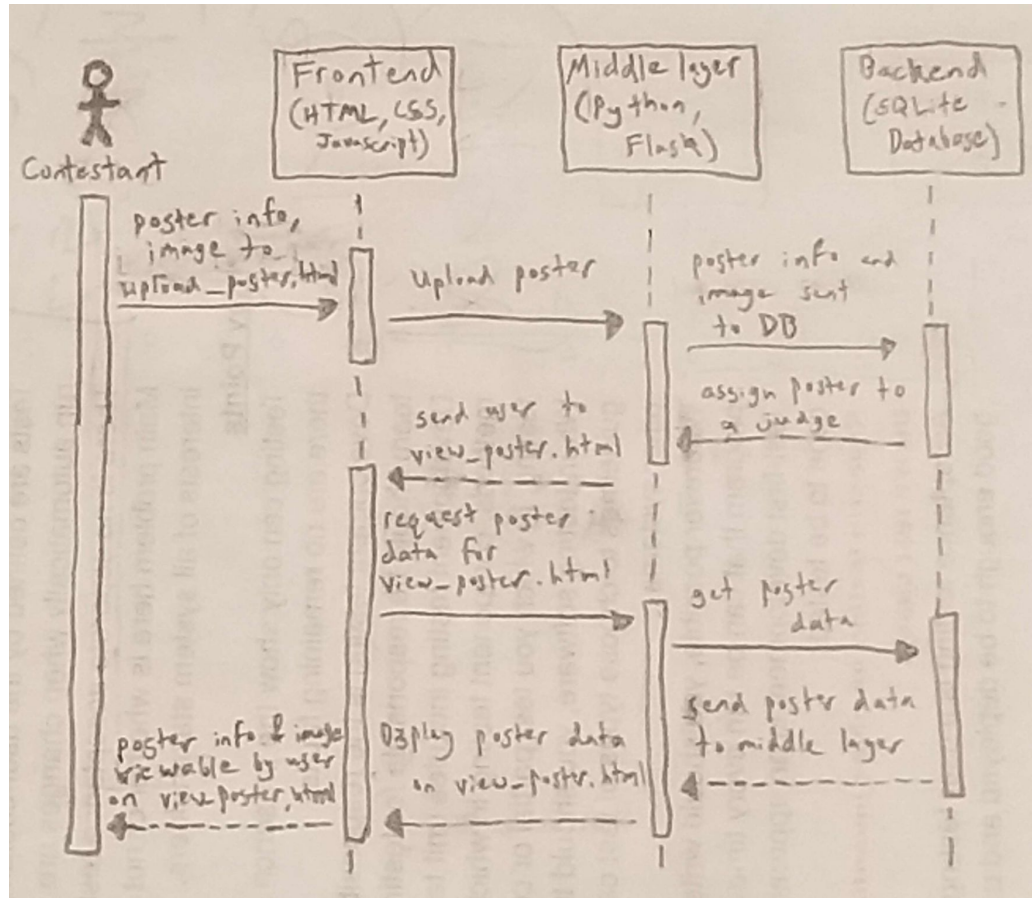 Contestant
Frontend
(HTML, CSS,
Javascript)
Middle layer
(Python,
Flask)
Backend
(SQLite
Database)
poster info,
image to
upload_poster.html
Upload poster
poster info and
image sent
to DB
assign poster to
a judge
send user to
view_poster.html
request poster
data for
view_poster.html
get poster
data
send poster data
to middle layer
Display poster data
on view_poster.html
poster info & image
viewable by user
on view_poster.html